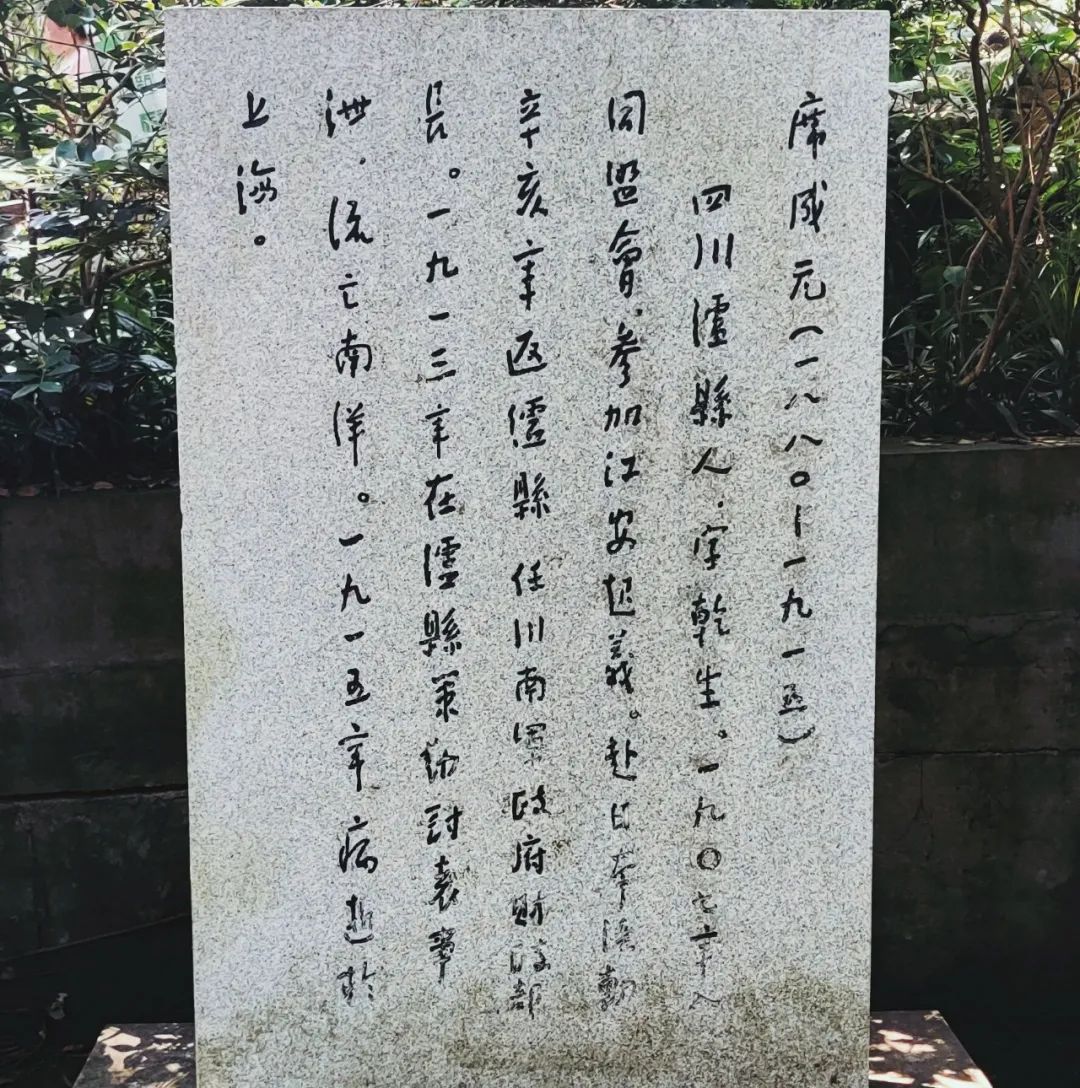 席成元(一八八〇—一九一五)
四川瀘縣人,字乾生。一九〇七年入
同盟會,參加江安起義。赴日本深勤
辛亥年返瀘縣 任川南軍政府財政部
長。一九一三年在瀘縣策動討袁事
泄,流亡南洋。一九一五年病逝於
上海。